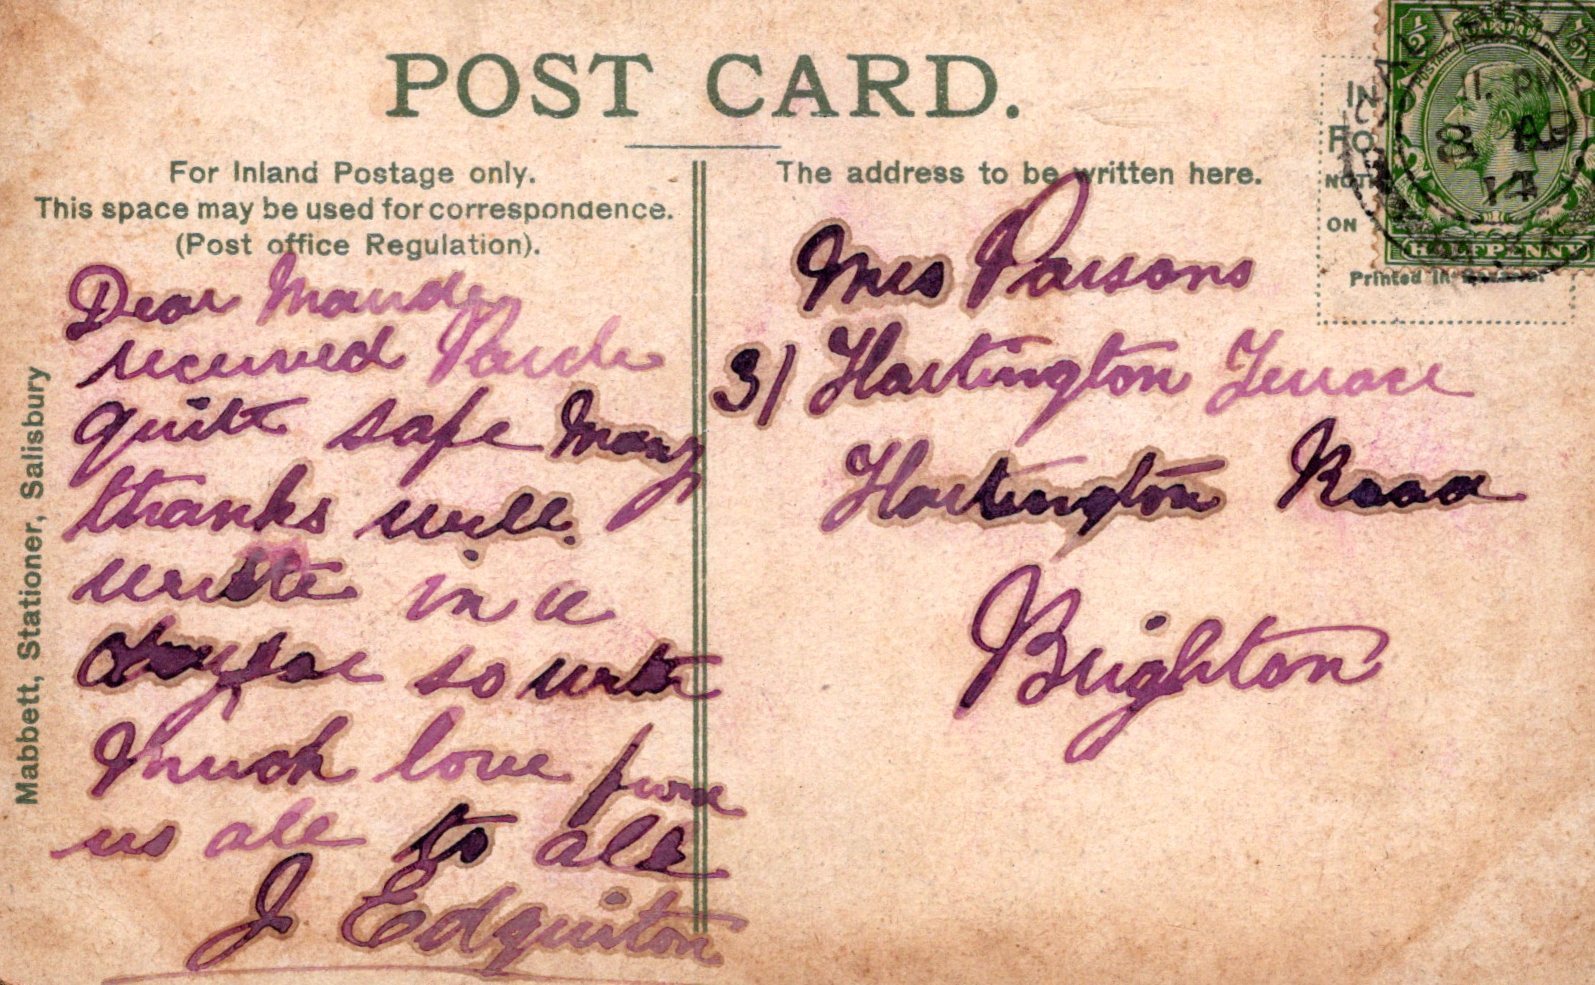 POST CARD.
For Inland Postage only.
This space may be used for correspondence.
(Post office Regulation).
The address to be written here.
Dear Maude
received Parcle
quite safe Many
thanks will
write in a
day or so with
much love from
us all to all
J Edguiton
Mrs Parsons
31 Hartington Terrace
Hartington Road
Brighton
Mabbett, Stationer, Salisbury
IN
FO
NOT
ON
Printed in
1/2
HALFPENNY
11. PM
8 AU
14